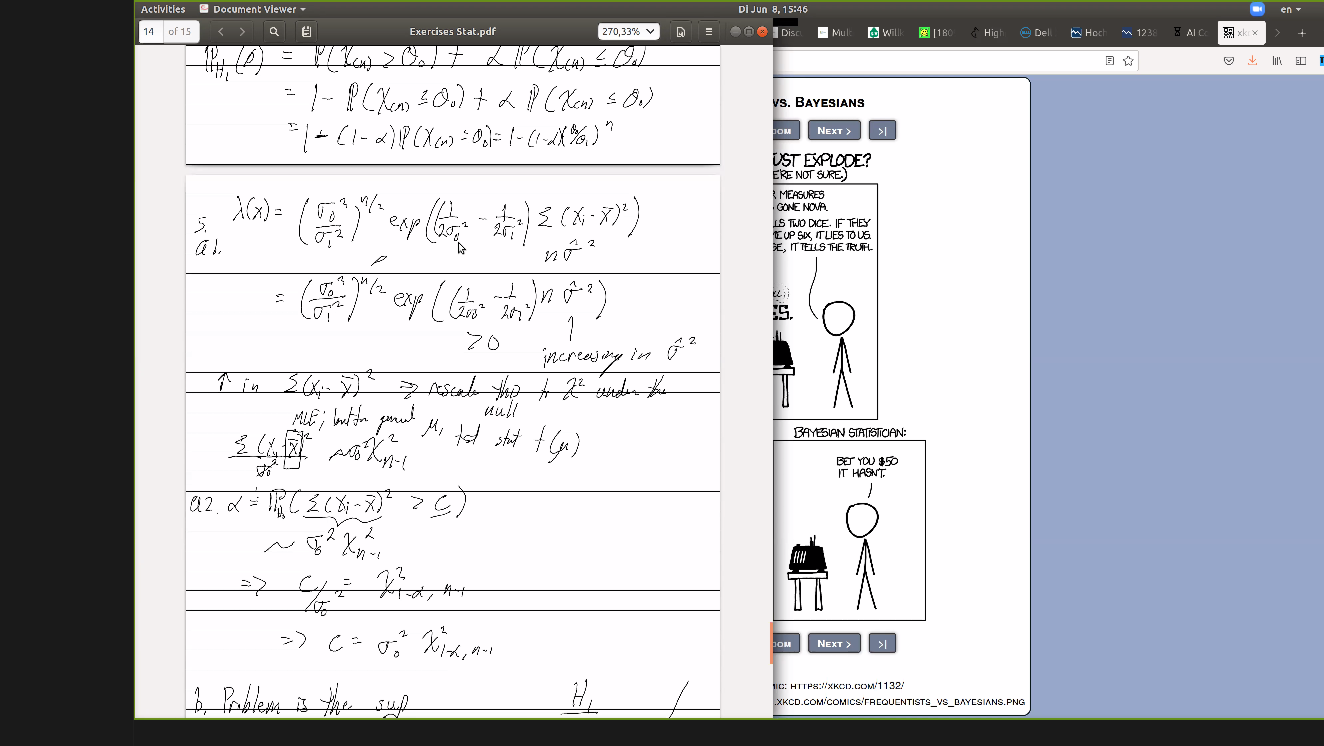 Activities Document Viewer Di Jun 8, 15:46 en
14 of 15 Exercises Stat.pdf 270,33%
Disc Mult Willk [180 High Deli Hoch 1238 AI Co xkc
P_{H_1}(φ) = P(X_{(n)} > θ_0) + α P(X_{(n)} ≤ θ_0)
= 1 - P(X_{(n)} ≤ θ_0) + α P(X_{(n)} ≤ θ_0)
= 1 - (1-α) P(X_{(n)} ≤ θ_0) = 1 - (1-α)(θ_0/θ_1)^n
5. λ(x) = (σ_0²/σ_1²)^{n/2} exp((1/2σ_0² - 1/2σ_1²) Σ(x_i - x̄)²)
a1. n σ̂²
= (σ_0²/σ_1²)^{n/2} exp((1/2σ_0² - 1/2σ_1²) n σ̂²)
> 0 ↑
increasing in σ̂²
↑ in Σ(x_i - x̄)² => rescale this to χ² under the
null
MLE; but for general μ, test stat f(μ)
Σ(x_i - x̄)²/σ_0² ~ σ_0² χ²_{n-1}
a2. α = P_{H_0}(Σ(x_i - x̄)² > C)
~ σ_0² χ²_{n-1}
=> C/σ_0² = χ²_{1-α, n-1}
=> C = σ_0² χ²_{1-α, n-1}
b. Problem is the sup H_1
vs. Bayesians
DOM Next > >|
UST EXPLODE?
E'RE NOT SURE.)
R MEASURES
GONE NOVA.
LLS TWO DICE. IF THEY
ME UP SIX, IT LIES TO US.
SE, IT TELLS THE TRUTH.
ES.
BAYESIAN STATISTICIAN:
BET YOU $50
IT HASN'T.
DOM Next > >|
MIC: HTTPS://XKCD.COM/1132/
.XKCD.COM/COMICS/FREQUENTISTS_VS_BAYESIANS.PNG